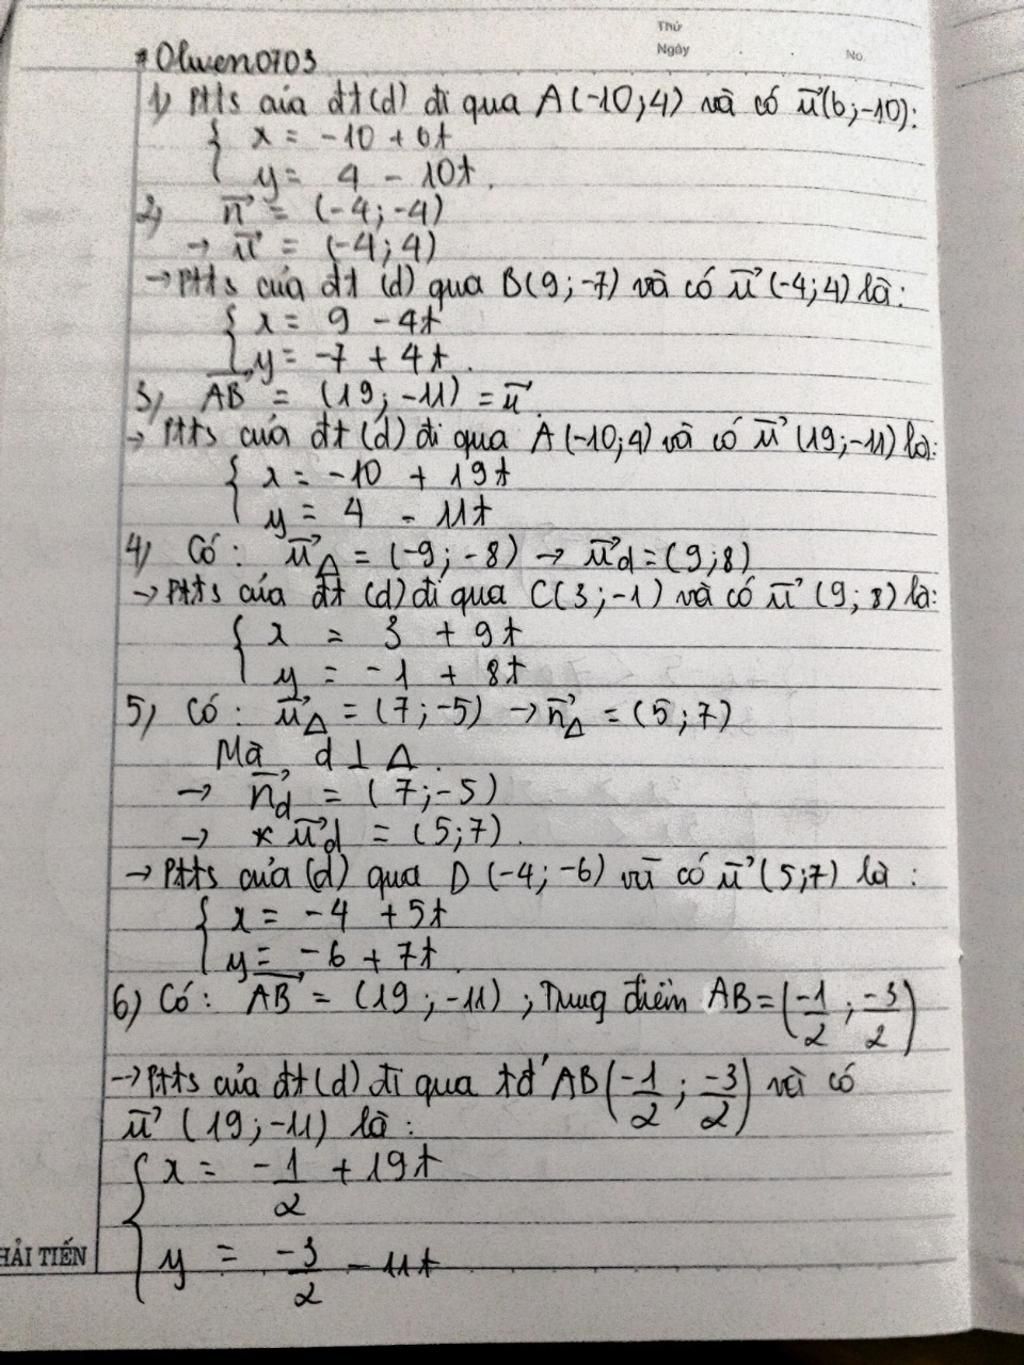 Thứ
Ngày
No.
* Olwen0703
1) Ptts của đt(d) đi qua A(-10;4) và có u⃗(6;-10):
{ x = -10 + 6t
y = 4 - 10t.
2) n⃗ = (-4;-4)
→ u⃗ = (-4;4)
→ Ptts của đt (d) qua B(9;-7) và có u⃗(-4;4) là:
{ x = 9 - 4t
y = -7 + 4t.
3) AB⃗ = (19;-11) = u⃗.
→ Ptts của đt(d) đi qua A(-10;4) và có u⃗(19;-11) là:
{ x = -10 + 19t
y = 4 - 11t
4) Có: u⃗Δ = (-9;-8) → u⃗d = (9;8)
→ Ptts của đt (d) đi qua C(3;-1) và có u⃗(9;8) là:
{ x = 3 + 9t
y = -1 + 8t
5) Có: u⃗Δ = (7;-5) → n⃗Δ = (5;7)
Mà d ⊥ Δ.
→ n⃗d = (7;-5)
→ * u⃗d = (5;7).
→ Ptts của (d) qua D(-4;-6) và có u⃗(5;7) là:
{ x = -4 + 5t
y = -6 + 7t.
6) Có: AB⃗ = (19;-11); Trung điểm AB = (-1/2; -3/2)
→ Ptts của đt(d) đi qua tđ AB(-1/2; -3/2) và có
u⃗(19;-11) là:
{ x = -1/2 + 19t
y = -3/2 - 11t
HẢI TIẾN